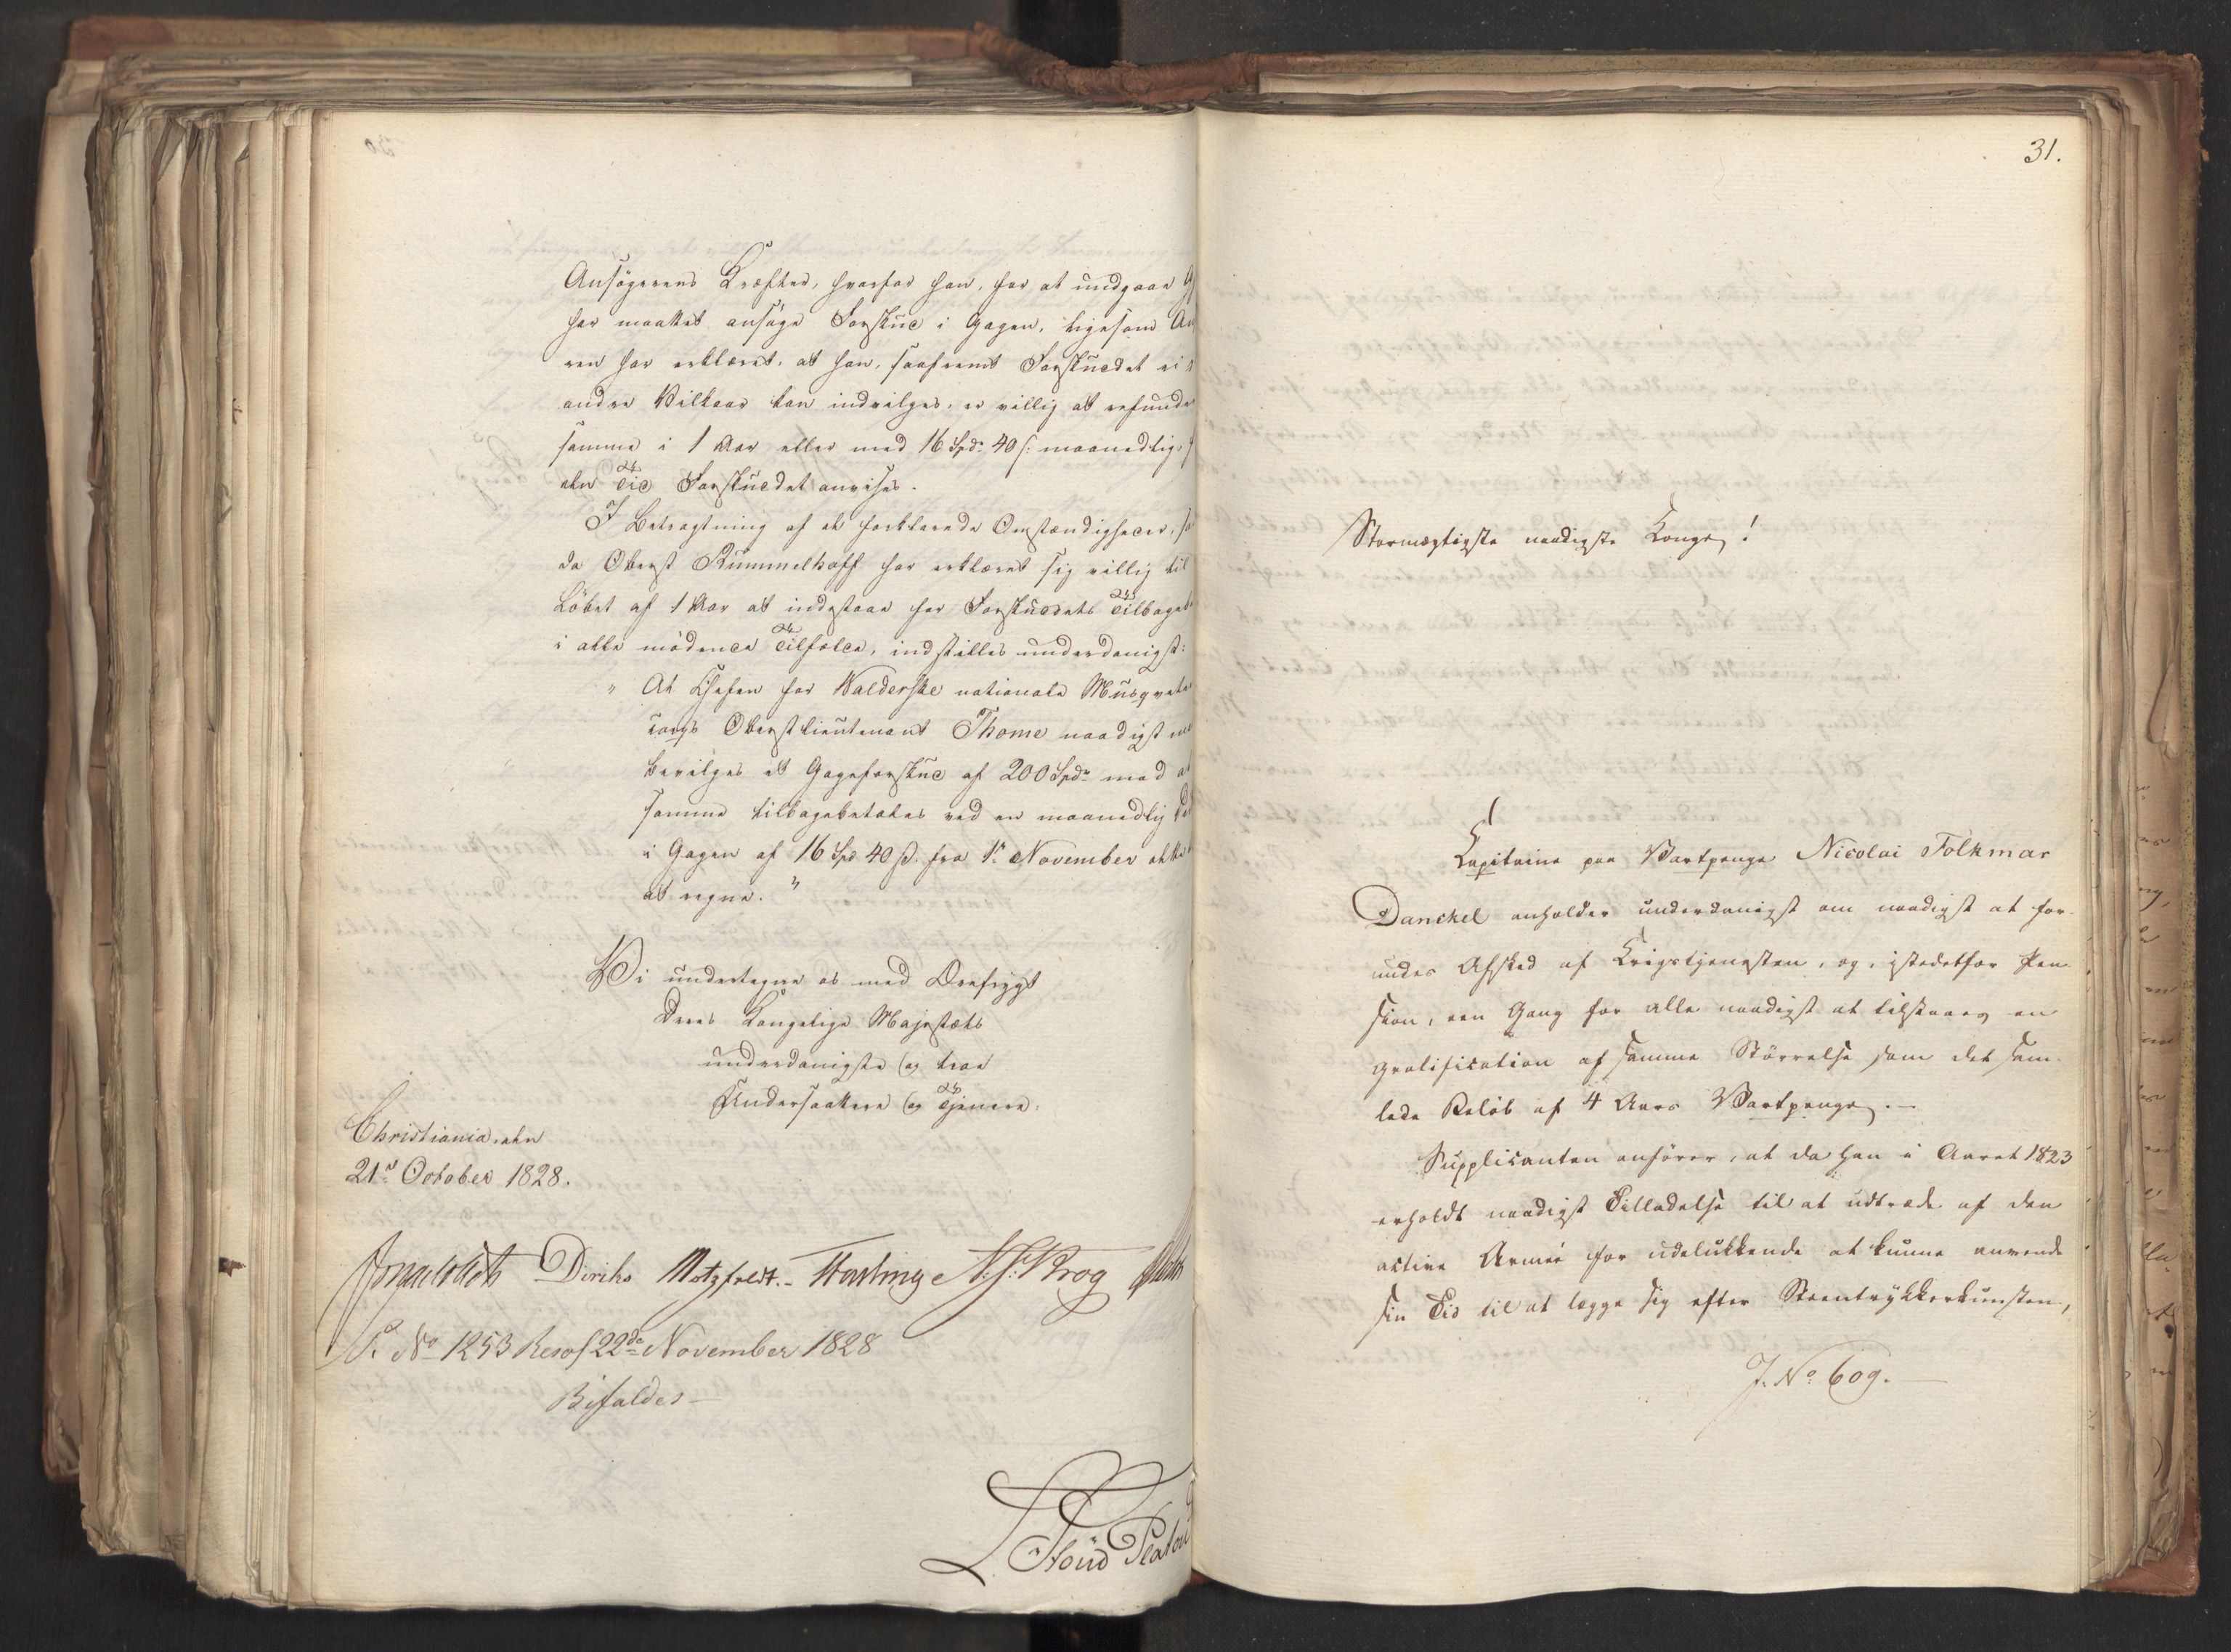 Ansøgerens Kræfter, hvorfor han, for at undgaae
har maattet ansøge Forskud i Gagen, ligesom An
ren har erklæret, at han, saafremt Forskuddet ei
andre Vilkaar kan indvilges, er villig at refunde
samme i 1 Aar eller med 16 Spd. 40 s. maanedlig,
den Tid Forskuddet anvises.
I Betragtning af de forklarede Omstændigheder, 
da Oberst Rummelhoff har erklæret sig villig til
Løbet af 1 Aar at indestaae for Forskuddets Tilbage
i alle mødende Tilfælde, indstilles underdanigst:
" At Chefen for Walderske nationale Musqvete
corps Oberstlieutenant Thome naadigst
bevilges et Gageforskud af 200 Spdr. mod at
samme tilbagebetales ved en maanedlig
i Gagen af 16 Spd. 40 ß. fra 1. November dette
at regne. "
Vi undertegne os med Ærefrygt
Deres Kongelige Majestæts
underdanigste og troe
Undersaattere og Tjenere.
Christiania, den
21. October 1828.
Diriks Motzfeldt. N. J. Krog
S. No 1253 Resol 22de November 1828
Bifaldes
31.
Stormægtigste naadigste Konge!
Kapitaine paa Vartpenge Nicolai Folkmar
Danckel anholder underdanigst om naadigst at for-
undes Afsked af Krigstjenesten, og, istedetfor Pen-
sion, een Gang for alle naadigst at tilstaaes en
Gratification af samme Størrelse som det sam-
lede Beløb af 4 Aars Vartpenge.-
Supplicanten anfører, at da han i Aaret 1823
erholdt naadigst Tilladelse til at udtræde af den
active Armee for udelukkende at kunne anvende
sin Tid til at lægge sig efter Steentrykkerkunsten,
J. No 609.